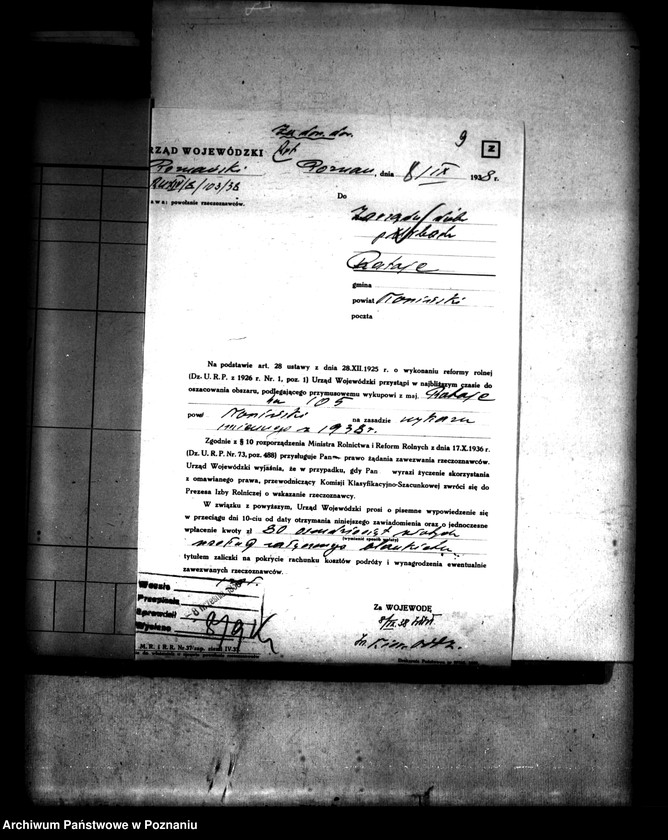 9
N
RZĄD WOJEWÓDZKI
Poznański
Poznań, dnia 8/IX 1938 r.
/103/38
awa: powołanie rzeczoznawców.
Do
Zarządu dóbr
Rataje
gmina
powiat
poczta
Na podstawie art. 28 ustawy z dnia 28.XII.1925 r. o wykonaniu reformy rolnej
(Dz. U. R. P. z 1926 r. Nr. 1, poz. 1) Urząd Wojewódzki przystąpi w najbliższym czasie do
oszacowania obszaru, podlegającego przymusowemu wykupowi z maj. Rataje
ha 105
pow. na zasadzie wykazu
imiennego z 1938 r.
Zgodnie z § 10 rozporządzenia Ministra Rolnictwa i Reform Rolnych z dnia 17.X.1936 r.
(Dz. U. R. P. Nr. 73, poz. 488) przysługuje Pan prawo żądania zawezwania rzeczoznawców.
Urząd Wojewódzki wyjaśnia, że w przypadku, gdy Pan wyrazi życzenie skorzystania
z omawianego prawa, przewodniczący Komisji Klasyfikacyjno-Szacunkowej zwróci się do
Prezesa Izby Rolniczej o wskazanie rzeczoznawcy.
W związku z powyższym, Urząd Wojewódzki prosi o pisemne wypowiedzenie się
w przeciągu dni 10-ciu od daty otrzymania niniejszego zawiadomienia oraz o jednoczesne
wpłacenie kwoty zł 80 osiemdziesiąt złotych
(wymienić sposób wpłaty)
według załączonego blankietu
tytułem zaliczki na pokrycie rachunku kosztów podróży i wynagrodzenia ewentualnie
zawezwanych rzeczoznawców.
Wpisano
Przepisano
Sprawdził
Wysłano 8/9
Za WOJEWODĘ
M. R. i R. R. Nr. 37/zap.
Archiwum Państwowe w Poznaniu